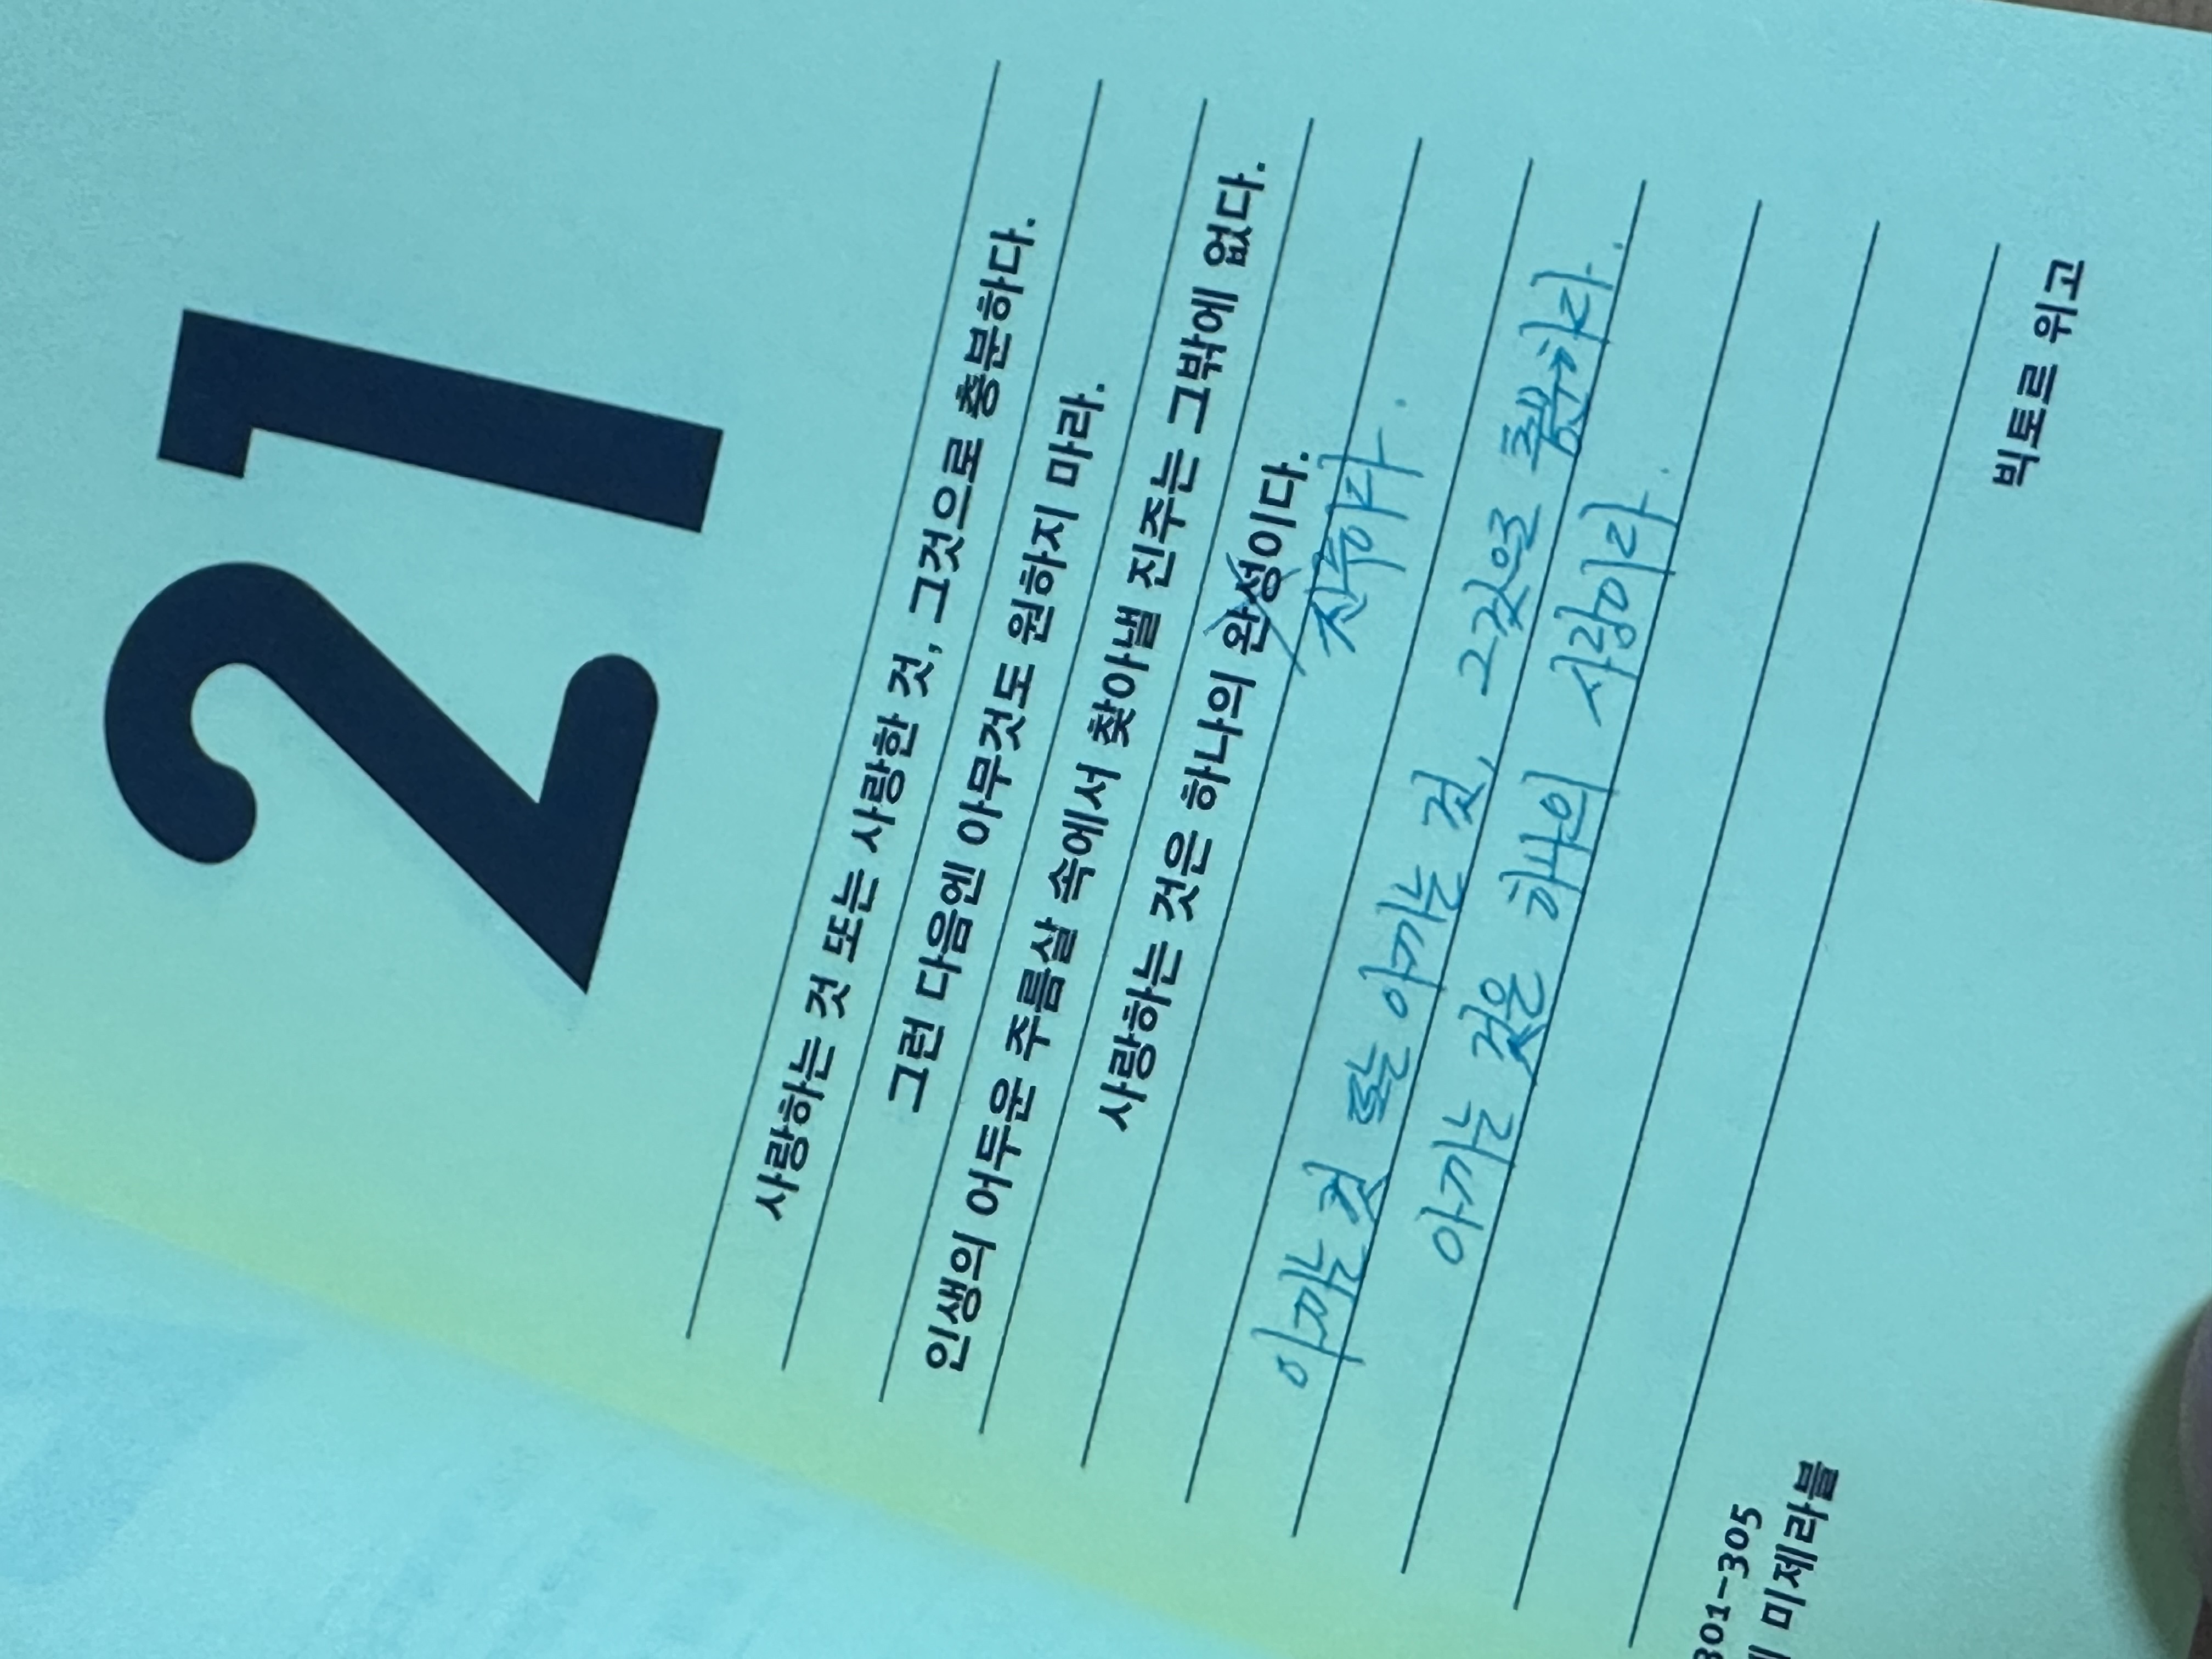 21
사랑하는 것 또는 사랑한 것, 그것으로 충분하다.
그런 다음엔 아무것도 원하지 마라.
인생의 어두운 주름살 속에서 찾아낼 진주는 그밖에 없다.
사랑하는 것은 하나의 완성이다.
진주이다.
아끼는 것 또는 아끼는 것, 그것을 품하다.
아끼는 것은 하나의 사랑이라.
빅토르 위고
301-305
미제라블